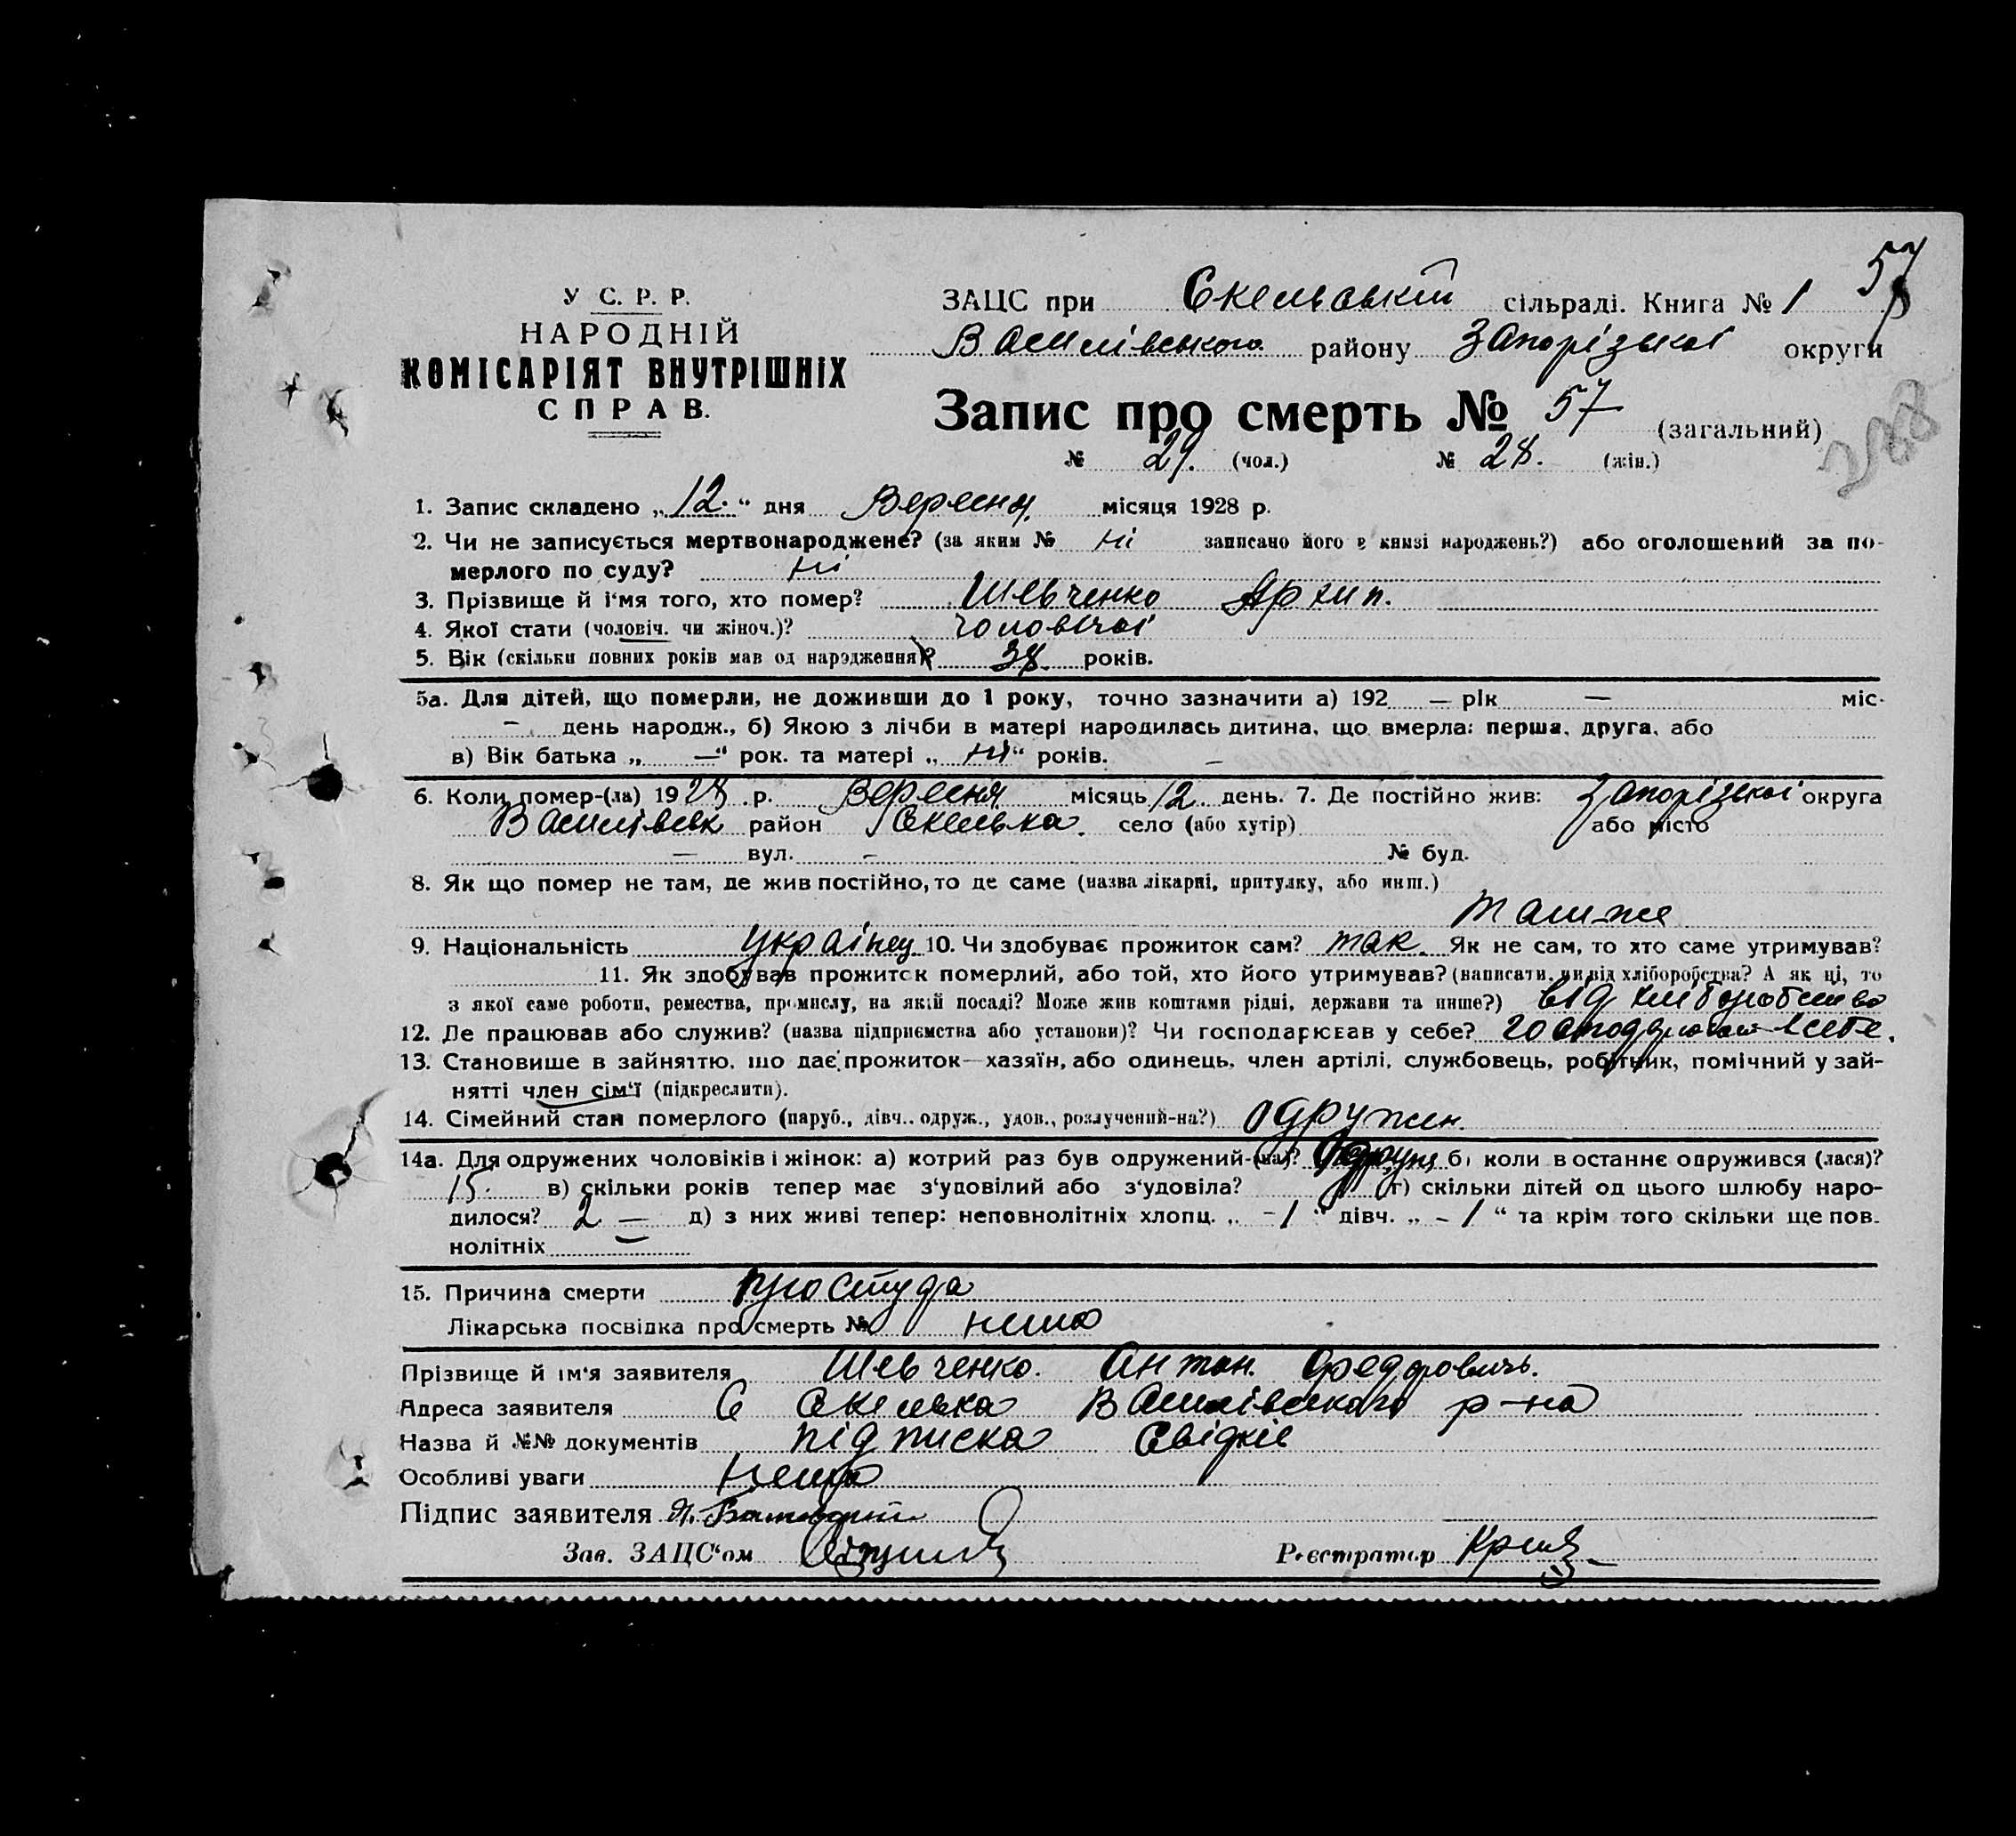 У С. Р. Р.
НАРОДНІЙ
КОМІСАРІЯТ ВНУТРІШНІХ
СПРАВ.
57
ЗАЦС при Скельській сільраді. Книга № 1
Василівського району Запорізької округи
Запис про смерть № 57 (загальний)
288
№ 29. (чол.) № 28. (жін.)
1. Запис складено „12.“ дня Вересня. місяця 1928 р.
2. Чи не записується мертвонароджене? (за яким № ні записано його в книзі народжень?) або оголошений за по-
мерлого по суду? ні
3. Прізвище й і'мя того, хто помер? Шевченко Архип.
4. Якої стати (чоловіч. чи жіноч.)? чоловічої
5. Вік (скільки повних років мав од народження)? 38 років.
5а. Для дітей, що померли, не доживши до 1 року, точно зазначити а) 192 — рік — міс.
— день народж., б) Якою з лічби в матері народилась дитина, що вмерла: перша, друга, або
в) Вік батька „ —“ рок. та матері „ ні“ років. —
6. Коли помер-(ла) 1928 р. Вересня місяць 12 день. 7. Де постійно жив: Запорізької округа
Василівськ район Скелька. село (або хутір) або місто
— вул. — № буд.
8. Як що помер не там, де жив постійно, то де саме (назва лікарні, притулку, або инш.)
там-же
9. Національність Українец 10. Чи здобуває прожиток сам? так. Як не сам, то хто саме утримував?
11. Як здобував прожиток померлий, або той, хто його утримував? (написати, чи від хліборобства? А як ці, то
з якої саме роботи, ремества, промислу, на якій посаді? Може жив коштами рідні, держави та инше?) від хліборобства
12. Де працював або служив? (назва підприємства або установи)? Чи господарював у себе? в себе.
13. Становище в зайняттю, що дає прожиток—хазяїн, або одинець, член артілі, службовець, робітник, помічний у зай-
нятті член сім'ї (підкреслити).
14. Сімейний стан померлого (паруб., дівч., одруж., удов., розлучений-на?) одружен.
14а. Для одружених чоловіків і жінок: а) котрий раз був одружений-(на)? б) коли востаннє одружився (лася)?
15. в) скільки років тепер має з'удовілий або з'удовіла? г) скільки дітей од цього шлюбу наро-
дилося? 2 — д) з них живі тепер: неповнолітніх хлопц. „ -1 “ дівч. „ - 1 “ та крім того скільки ще пов-
нолітніх —
15. Причина смерти простуда
Лікарська посвідка про смерть № нема
Прізвище й ім'я заявителя Шевченко. Антон. Федорович.
Адреса заявителя С Скелька Василівського р-на
Назва й №№ документів підписка свідків
Особливі уваги нема
Підпис заявителя
Зав. ЗАЦС'ом
Реєстратор